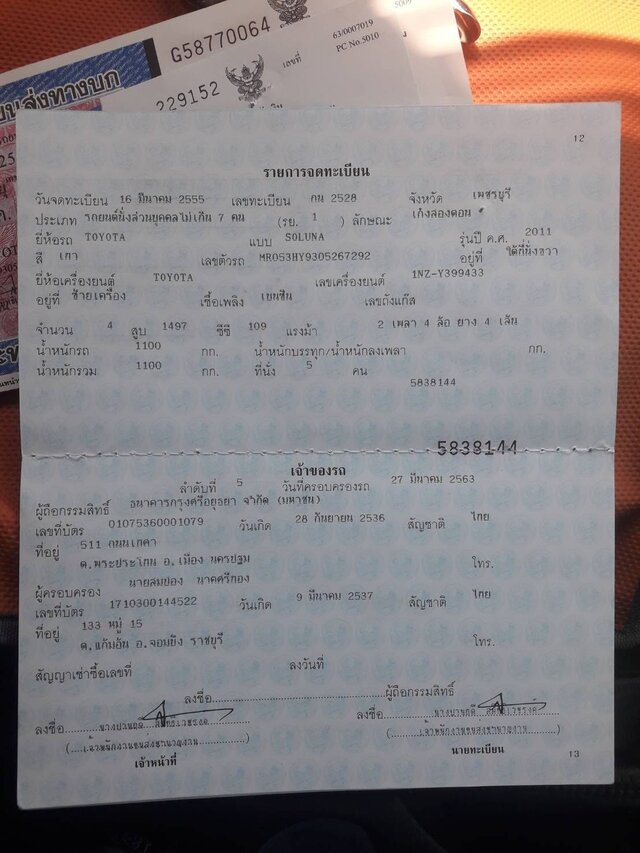 G58770064
63/0007019
PC No.5010
5009
เลขที่
229152
ขนส่งทางบก
12
รายการจดทะเบียน
วันจดทะเบียน 16 มีนาคม 2555 เลขทะเบียน กน 2528 จังหวัด เพชรบุรี
ประเภท รถยนต์นั่งส่วนบุคคลไม่เกิน 7 คน (รย. 1 ) ลักษณะ เก๋งสองตอน
ยี่ห้อรถ TOYOTA แบบ SOLUNA รุ่นปี ค.ศ. 2011
สี เทา เลขตัวรถ MR053HY9305267292 อยู่ที่ ใต้ที่นั่งขวา
ยี่ห้อเครื่องยนต์ TOYOTA เลขเครื่องยนต์ 1NZ-Y399433
อยู่ที่ ซ้ายเครื่อง เชื้อเพลิง เบนซิน เลขถังแก๊ส
จำนวน 4 สูบ 1497 ซีซี 109 แรงม้า 2 เพลา 4 ล้อ ยาง 4 เส้น
น้ำหนักรถ 1100 กก. น้ำหนักบรรทุก/น้ำหนักลงเพลา กก.
น้ำหนักรวม 1100 กก. ที่นั่ง 5 คน
5838144
5838144
เจ้าของรถ
ลำดับที่ 5 วันที่ครอบครองรถ 27 มีนาคม 2563
ผู้ถือกรรมสิทธิ์ ธนาคารกรุงศรีอยุธยา จำกัด (มหาชน)
เลขที่บัตร 01075360001079 วันเกิด 28 กันยายน 2536 สัญชาติ ไทย
ที่อยู่ 511 ถนนเทศา
ต.พระประโทน อ.เมือง นครปฐม โทร.
ผู้ครอบครอง นายสมปอง นาคศรีทอง
เลขที่บัตร 1710300144522 วันเกิด 9 มีนาคม 2537 สัญชาติ ไทย
ที่อยู่ 133 หมู่ 15
ต.แก้มอ้น อ.จอมบึง ราชบุรี โทร.
สัญญาเช่าซื้อเลขที่ ลงวันที่
ลงชื่อ ผู้ถือกรรมสิทธิ์
ลงชื่อ ลงชื่อ
(เจ้าพนักงานขนส่งชำนาญงาน) (เจ้าพนักงานขนส่งชำนาญงาน)
เจ้าหน้าที่ นายทะเบียน
13